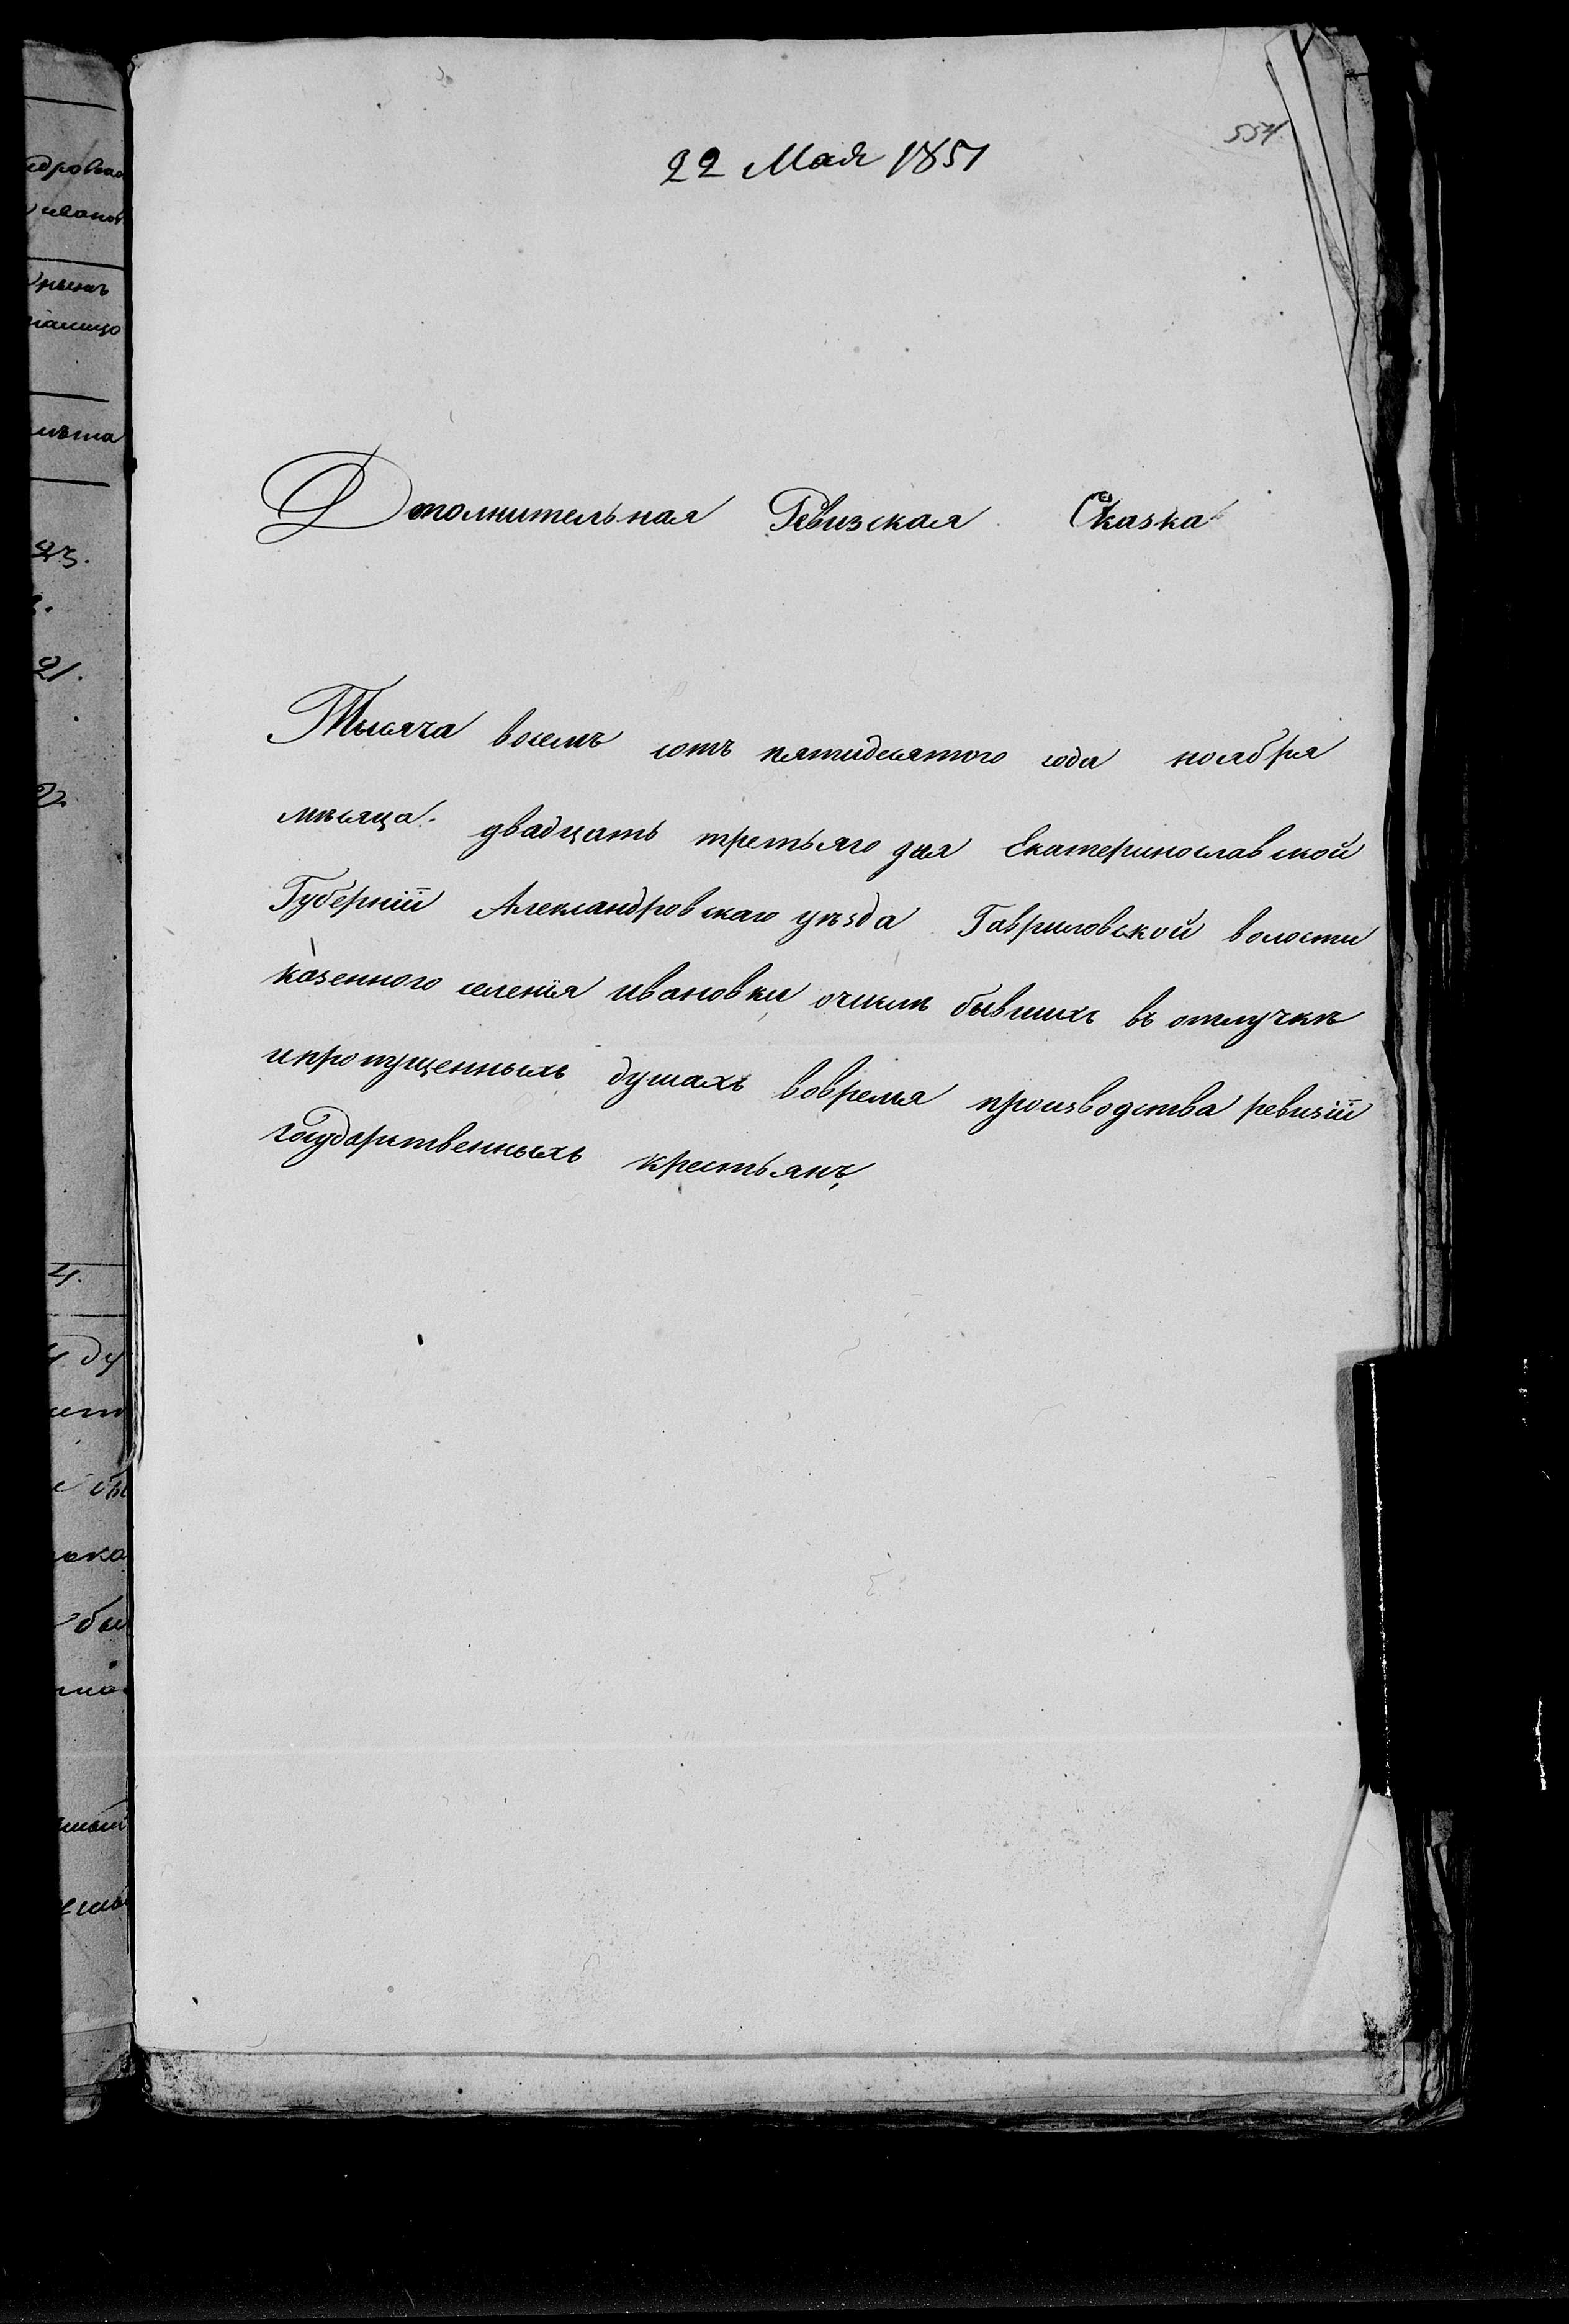 554
22 Мая 1851
Дополнительная Ревизская Сказка
Тысяча восемь сотъ пятидесятого года ноября
мѣсяца двадцать третьяго дня Екатеринославской
Губерніи Александровскаго уѣзда Гавриловской волости
казенного селенія ивановки очислѣ бывшихъ въ отлучкѣ
ипропущенныхъ душахъ вовремя производства ревизіи
государственныхъ крестьянъ,